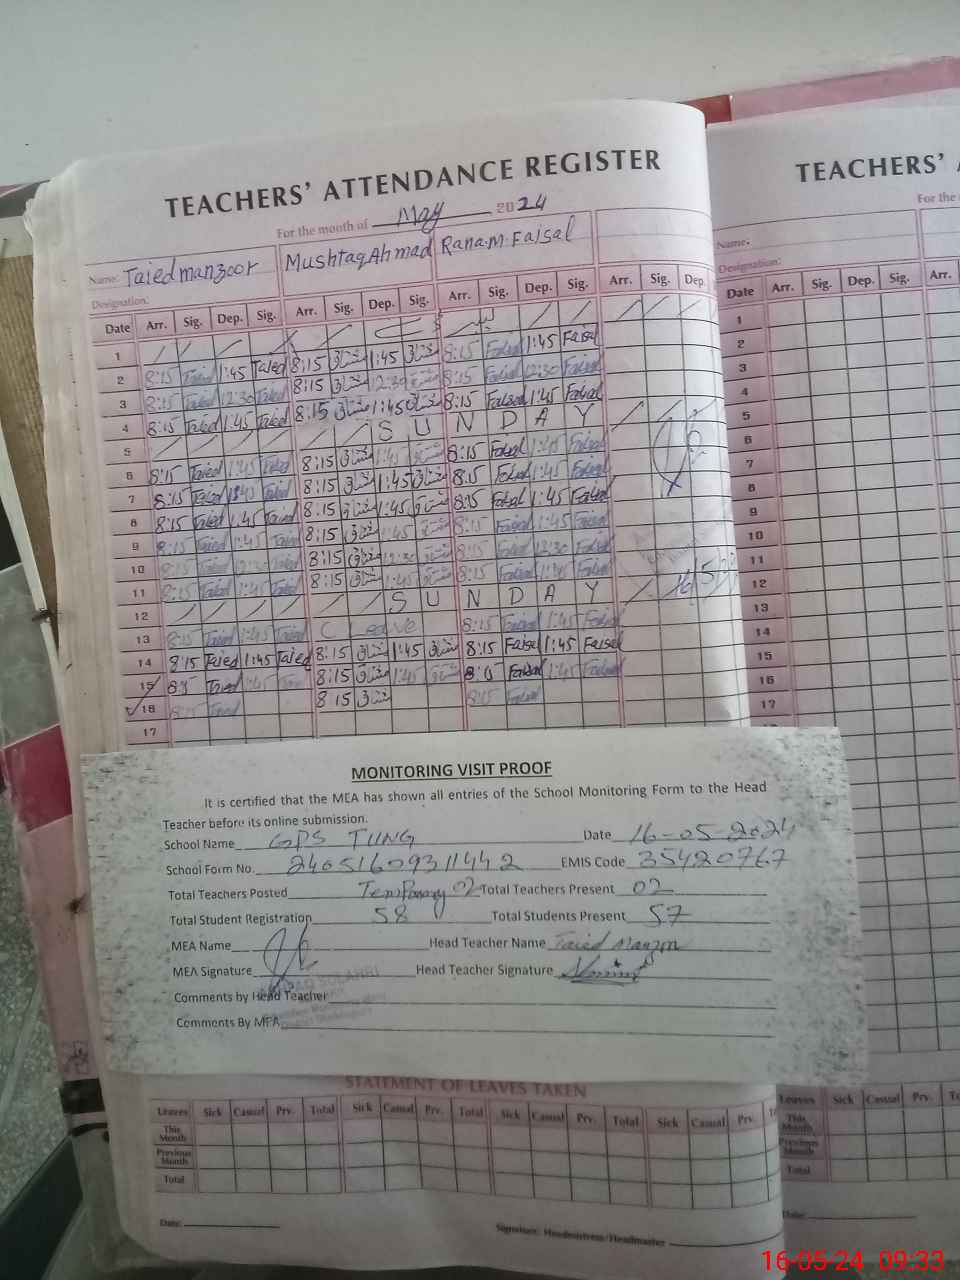 TEACHERS' ATTENDANCE REGISTER
For the month of May 2024
Name: Taied manzoor Mushtaq Ahmad Rana.M.Faisal
Designation:
Date Arr. Sig. Dep. Sig. Arr. Sig. Dep. Sig. Arr. Sig. Dep. Sig. Arr. Sig. Dep.
1
2 8:15 Taied 1:45 Taied 8:15 مشتاق 1:45 مشتاق 8:15 Faisal 1:45 Faisal
3 8:15 Taied 12:30 Taied 8:15 مشتاق 12:30 مشتاق 8:15 Faisal 12:30 Faisal
4 8:15 Taied 1:45 Taied 8:15 مشتاق 1:45 مشتاق 8:15 Faisal 1:45 Faisal
5 S U N D A Y
6 8:15 Taied 1:45 Taied 8:15 مشتاق 1:45 مشتاق 8:15 Faisal 1:45 Faisal
7 8:15 Taied 1:45 Taied 8:15 مشتاق 1:45 مشتاق 8:15 Faisal 1:45 Faisal
8 8:15 Taied 1:45 Taied 8:15 مشتاق 1:45 مشتاق 8:15 Faisal 1:45 Faisal
9 8:15 Taied 1:45 Taied 8:15 مشتاق 1:45 مشتاق 8:15 Faisal 1:45 Faisal
10 8:15 Taied 12:30 Taied 8:15 مشتاق 12:30 مشتاق 8:15 Faisal 12:30 Faisal
11 8:15 Taied 1:45 Taied 8:15 مشتاق 1:45 مشتاق 8:15 Faisal 1:45 Faisal
12 S U N D A Y
13 8:15 Taied 1:45 Taied C Leave 8:15 Faisal 1:45 Faisal
14 8:15 Taied 1:45 Taied 8:15 مشتاق 1:45 مشتاق 8:15 Faisal 1:45 Faisal
15 8:15 Taied 1:45 Taied 8:15 مشتاق 1:45 مشتاق 8:15 Faisal 1:45 Faisal
16 8:15 Taied 8:15 مشتاق 8:15 Faisal
17
MONITORING VISIT PROOF
It is certified that the MEA has shown all entries of the School Monitoring Form to the Head
Teacher before its online submission.
School Name GPS TUNG Date 16-05-2024
School Form No. 24051609311442 EMIS Code 35420767
Total Teachers Posted Temporary 02 Total Teachers Present 02
Total Student Registration 58 Total Students Present 57
MEA Name Head Teacher Name Taied Manzoor
MEA Signature Head Teacher Signature
Comments by Head Teacher
Comments By MEA
STATEMENT OF LEAVES TAKEN
Leaves Sick Casual Prv. Total Sick Casual Prv. Total Sick Casual Prv. Total Sick Casual Prv.
This Month
Previous Month
Total
Date: Signature: Headmistress/Headmaster
TEACHERS'
For the
Name:
Designation:
Date Arr. Sig. Dep. Sig. Arr.
1
2
3
4
5
6
7
8
9
10
11
12
13
14
15
16
17
Leaves Sick Casual Prv.
This Month
Previous Month
Total
Date:
16-05-24 09:33